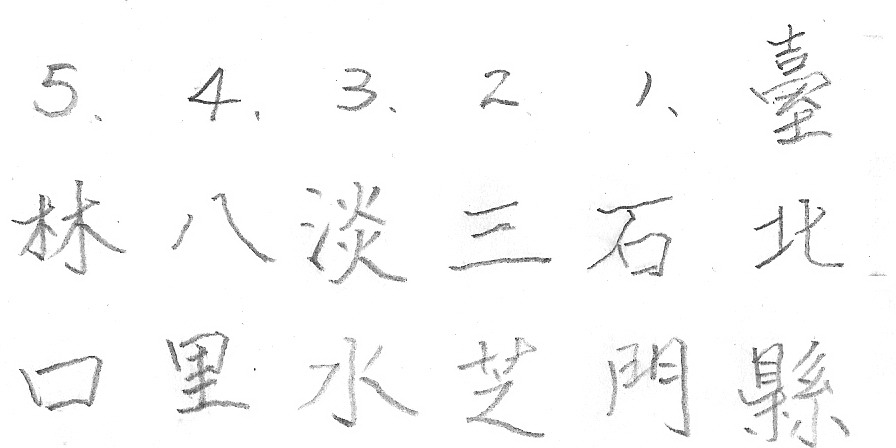 臺北縣
1、石門
2 三芝
3、淡水
4、八里
5、林口